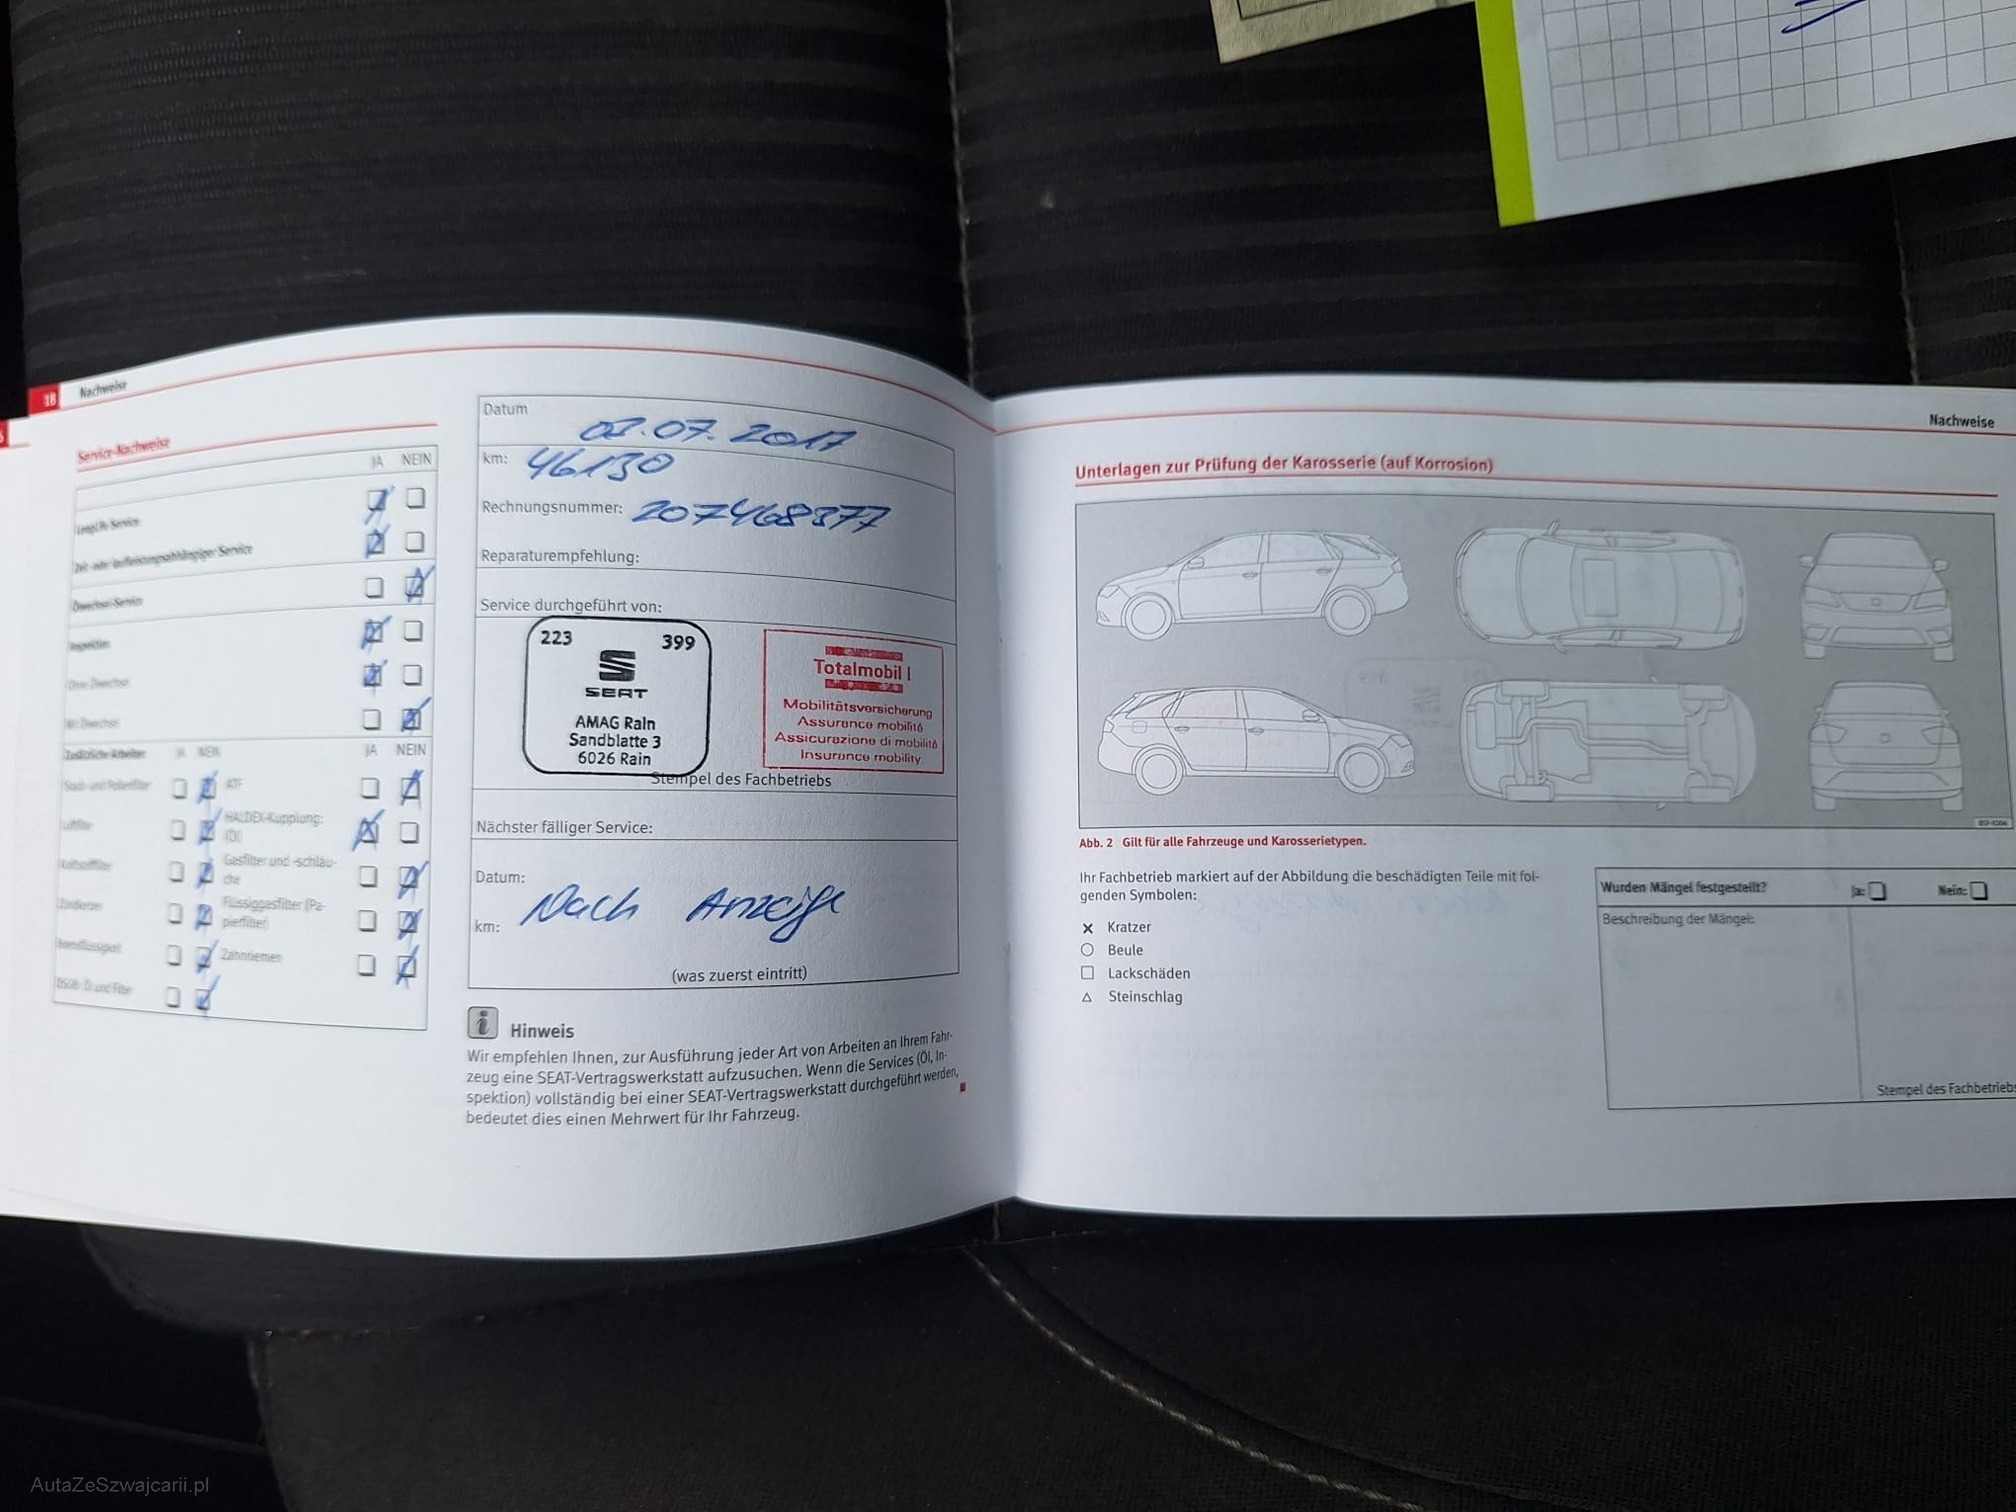 18 Nachweise
Service-Nachweise
JA NEIN
LongLife-Service
Zeit- oder laufleistungsabhängiger Service
Ölwechsel-Service
Inspektion
Ohne Ölwechsel
Mit Ölwechsel
Zusätzliche Arbeiten JA NEIN JA NEIN
Staub- und Pollenfilter
ATF
Luftfilter
HALDEX-Kupplung:
(Öl)
Kraftstofffilter
Gasfilter und -schläu-
che
Zündkerzen
Flüssiggasfilter (Pa-
pierfilter)
Bremsflüssigkeit
Zahnriemen
DSG®: Öl und Filter
Datum
07.2017
km: 46130
Rechnungsnummer: 207468377
Reparaturempfehlung:
Service durchgeführt von:
223 399
SEAT
AMAG Rain
Sandblatte 3
6026 Rain
Totalmobil !
Mobilitätsversicherung
Assurance mobilité
Assicurazione di mobilità
Insurance mobility
Stempel des Fachbetriebs
Nächster fälliger Service:
Datum:
Nach Anzeige
km:
(was zuerst eintritt)
i Hinweis
Wir empfehlen Ihnen, zur Ausführung jeder Art von Arbeiten an Ihrem Fahr-
zeug eine SEAT-Vertragswerkstatt aufzusuchen. Wenn die Services (Öl, In-
spektion) vollständig bei einer SEAT-Vertragswerkstatt durchgeführt werden,
bedeutet dies einen Mehrwert für Ihr Fahrzeug.
Nachweise
Unterlagen zur Prüfung der Karosserie (auf Korrosion)
Abb. 2 Gilt für alle Fahrzeuge und Karosserietypen.
Ihr Fachbetrieb markiert auf der Abbildung die beschädigten Teile mit fol-
genden Symbolen:
Kratzer
Beule
Lackschäden
Steinschlag
Wurden Mängel festgestellt? Ja: Nein:
Beschreibung der Mängel:
Stempel des Fachbetriebs
AutaZeSzwajcarii.pl